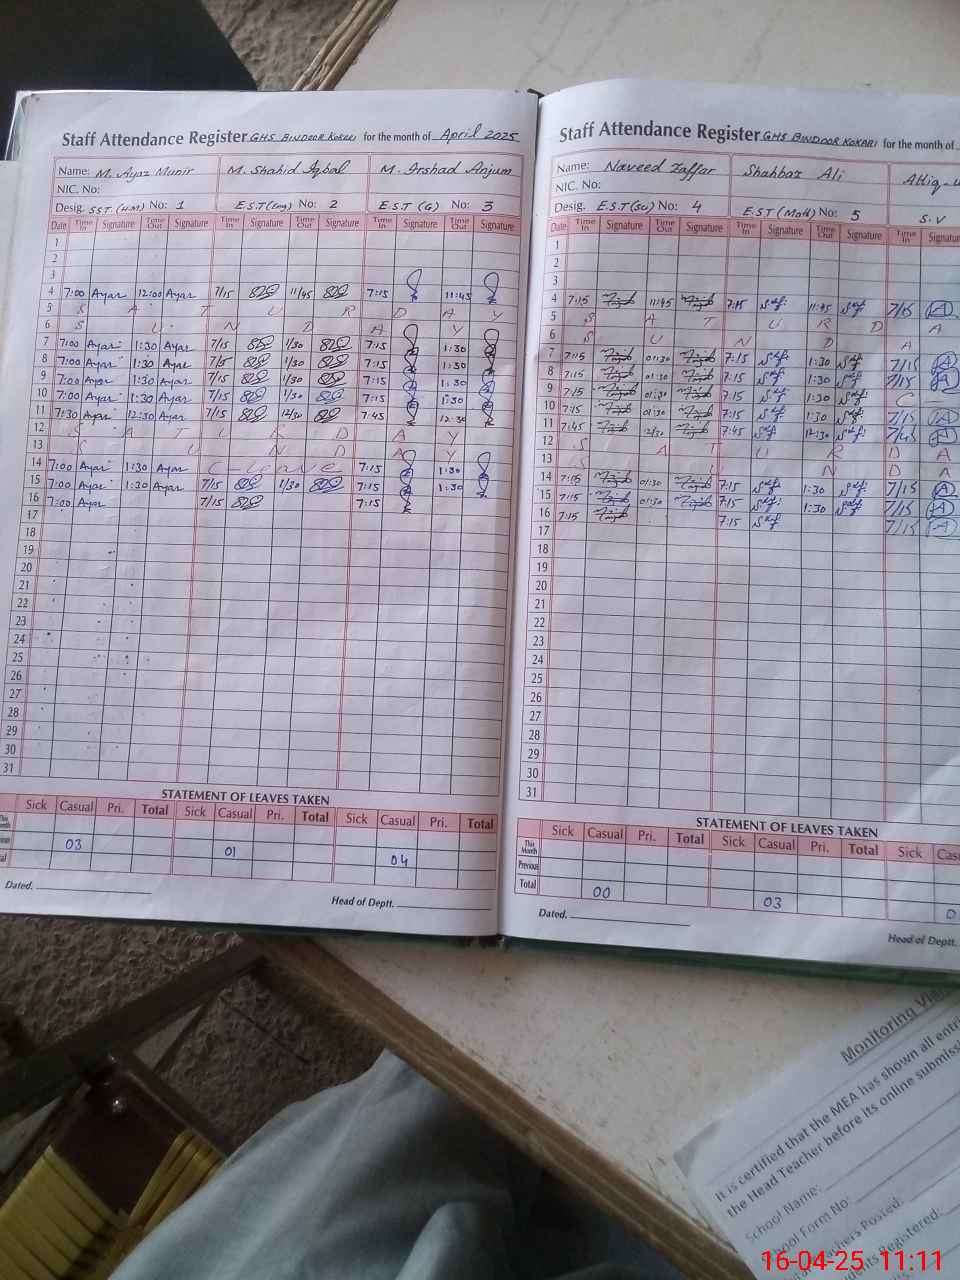 Staff Attendance Register GHS BINDOOR KOKARI for the month of April 2025
Name: M. Ayaz Munir M. Shahid Iqbal M. Arshad Anjum
NIC. No:
Desig. SST (H.M) No: 1 E.S.T (Eng) No: 2 E.S.T (G) No: 3
Date Time In Signature Time Out Signature Time In Signature Time Out Signature Time In Signature Time Out Signature
1
2
3
4 7:00 Ayaz 12:00 Ayaz 7/15 11/45 7:15 11:45
5 S A T U R D A Y
6 S U N D A Y
7 7:00 Ayaz 1:30 Ayaz 7/15 1/30 7:15 1:30
8 7:00 Ayaz 1:30 Ayaz 7/15 1/30 7:15 1:30
9 7:00 Ayaz 1:30 Ayaz 7/15 1/30 7:15 1:30
10 7:00 Ayaz 1:30 Ayaz 7/15 1/30 7:15 1:30
11 7:30 Ayaz 12:30 Ayaz 7/15 12/30 7:45 12:30
12 S A T U R D A Y
13 S U N D A Y
14 7:00 Ayaz 1:30 Ayaz C-Leave 7:15 1:30
15 7:00 Ayaz 1:30 Ayaz 7/15 1/30 7:15 1:30
16 7:00 Ayaz 7/15 7:15
17
18
19
20
21
22
23
24
25
26
27
28
29
30
31
STATEMENT OF LEAVES TAKEN
Sick Casual Pri. Total Sick Casual Pri. Total Sick Casual Pri. Total
03 01 04
Dated.
Head of Deptt.
Staff Attendance Register GHS BINDOOR KOKARI for the month of
Name: Naveed Zaffar Shahbaz Ali Attiq-u
NIC. No:
Desig. E.S.T (Sc) No: 4 E.S.T (Math) No: 5 S.V
Date Time In Signature Time Out Signature Time In Signature Time Out Signature Time In Signatur
1
2
3
4 7:15 11:45 7:15 11:45 7/15
5 S A T U R D A
6 S U N D A
7 7:15 01:30 7:15 1:30 7/15
8 7:15 01:30 7:15 1:30 7/15
9 7:15 01:30 7:15 1:30 C
10 7:15 01:30 7:15 1:30 7/15
11 7:45 12/30 7:45 12:30 7/45
12 S A T U R D A
13 S U N D A
14 7:15 01:30 7:15 1:30 7/15
15 7:15 01:30 7:15 1:30 7/15
16 7:15 7:15 7/15
17
18
19
20
21
22
23
24
25
26
27
28
29
30
31
STATEMENT OF LEAVES TAKEN
Sick Casual Pri. Total Sick Casual Pri. Total Sick Cas
This Month
Previous
Total 00 03 0
Dated.
Head of Deptt.
Monitoring Vi
It is certified that the MEA has shown all entri
the Head Teacher before its online submiss
School Name:
School Form No:
Teachers Posted:
ents Registered:
16-04-25 11:11